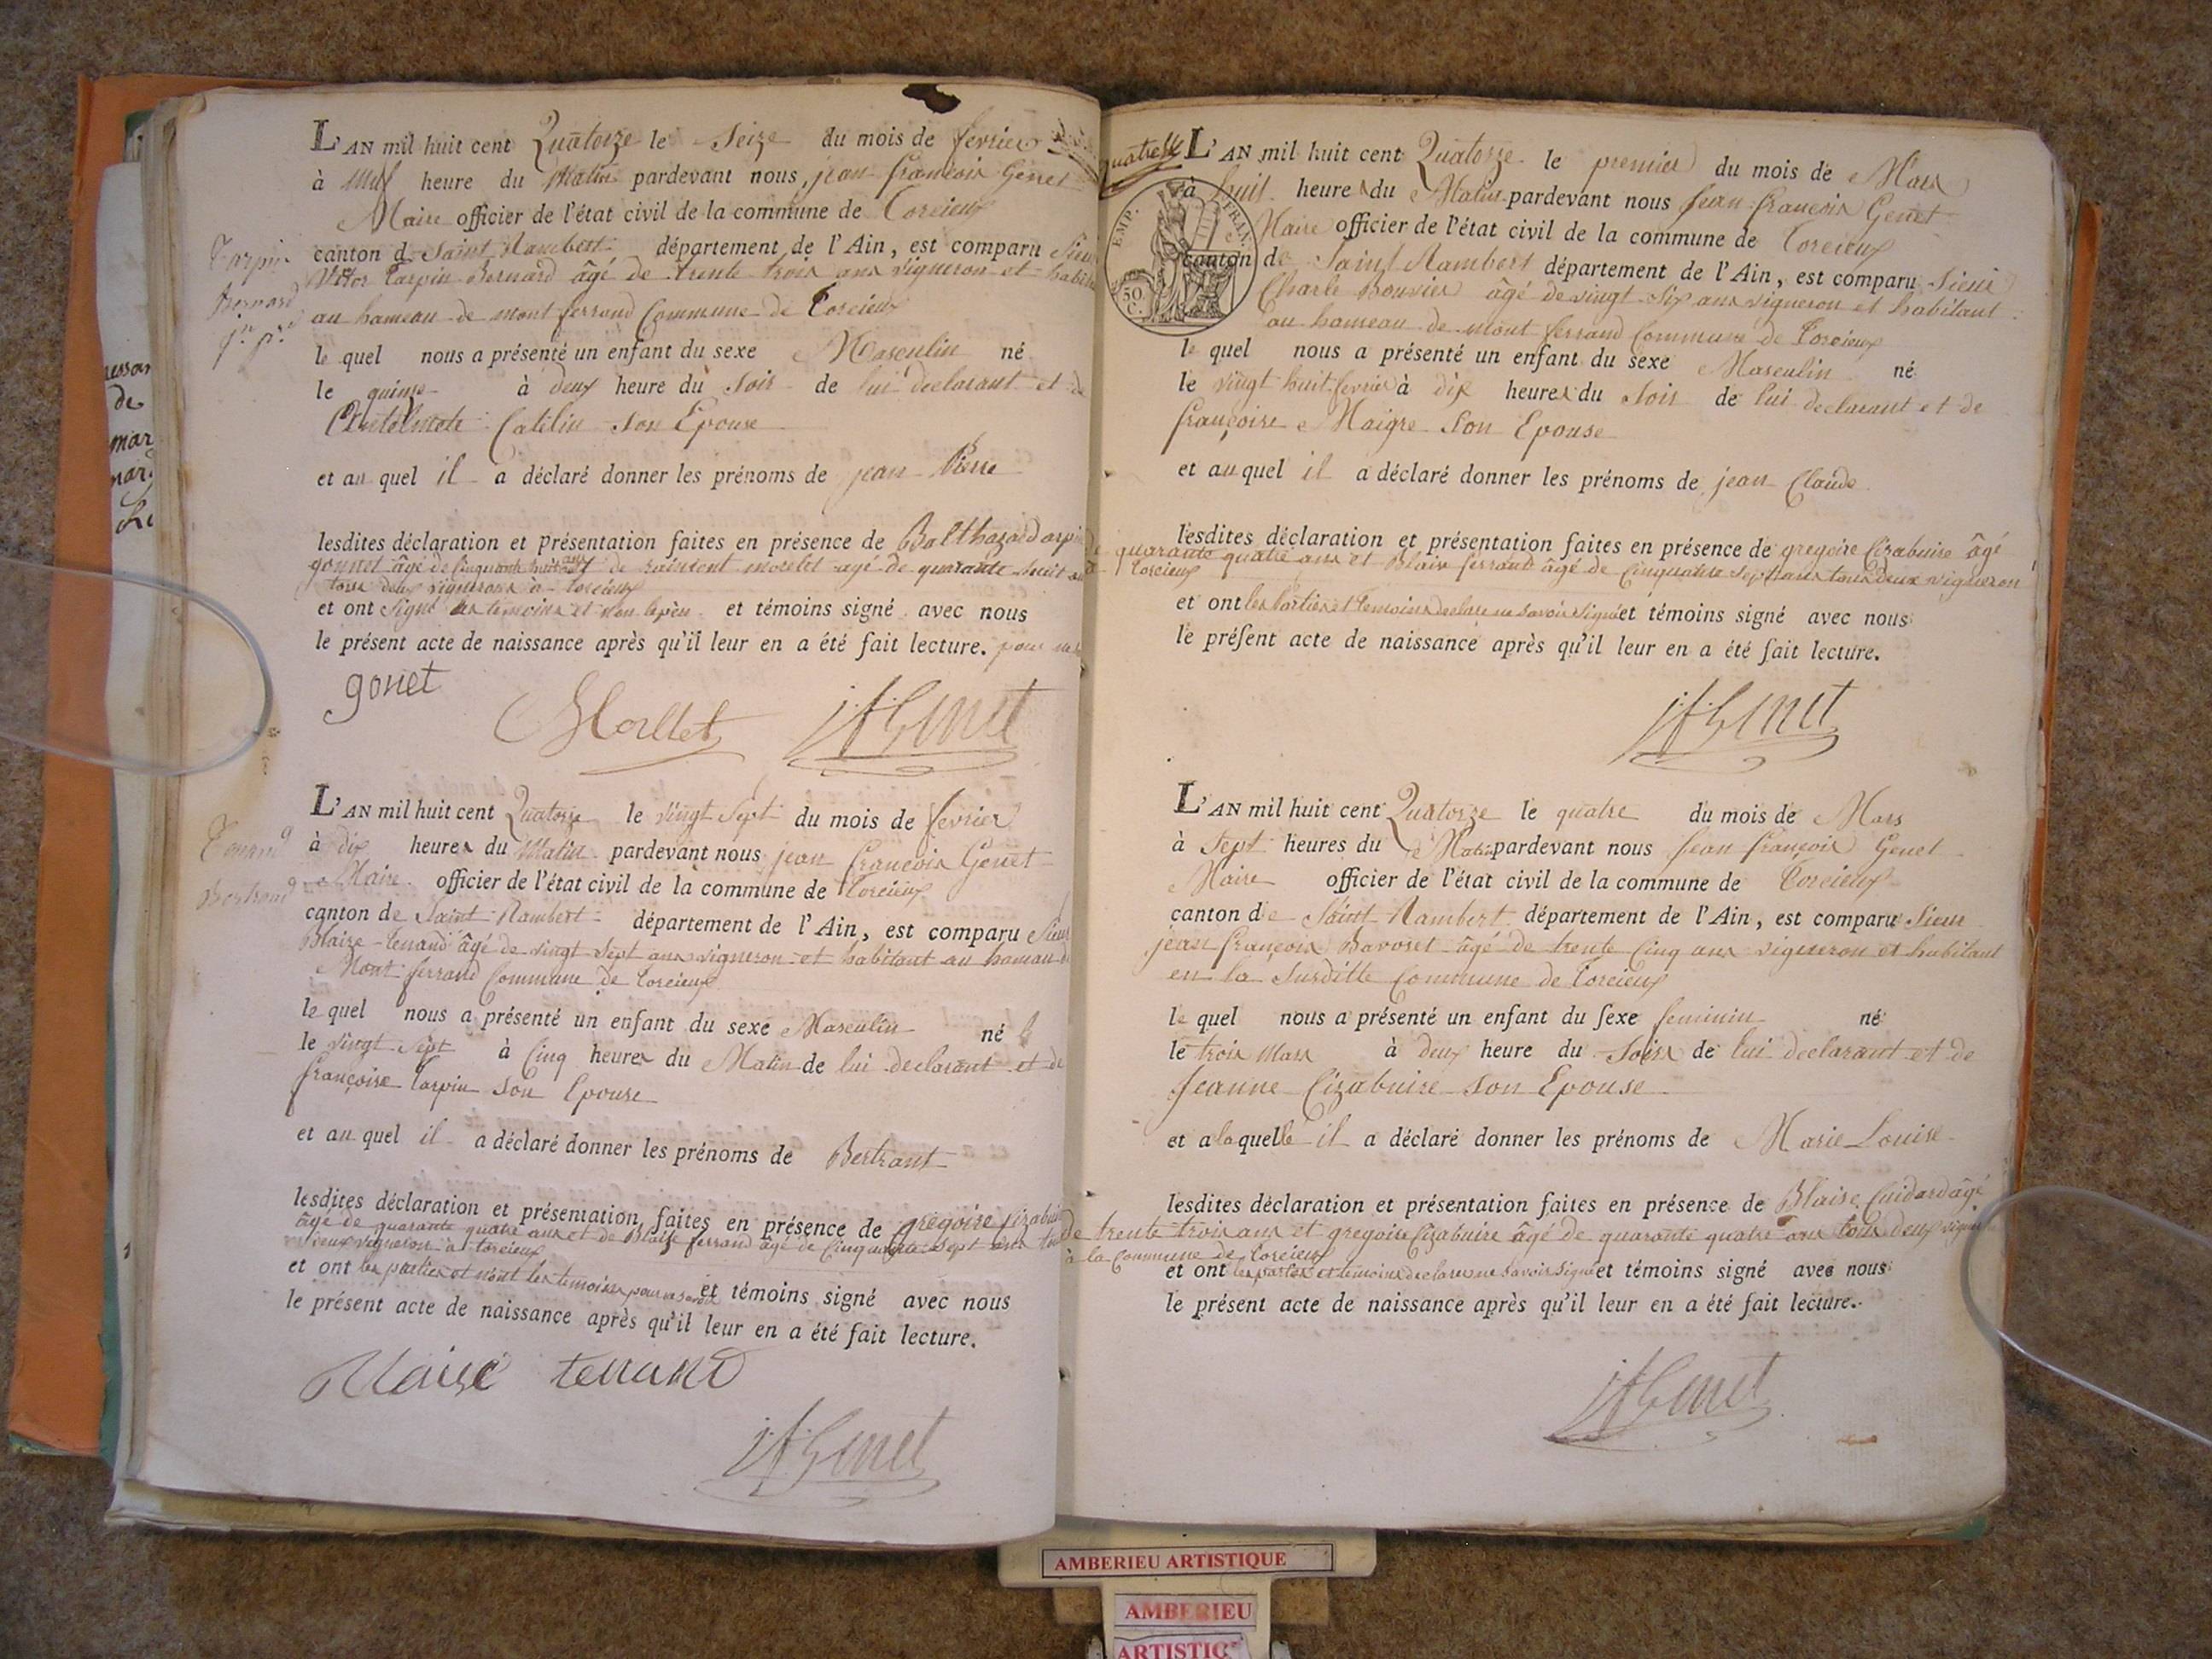 L'AN mil huit cent Quatorze le Seize du mois de fevrier
à neuf heure du Matin pardevant nous, jean françois Genet
Maire officier de l'état civil de la commune de Torcieux
canton de Saint Rambert département de l'Ain, est comparu Sieur
Victor Tarpin Bernard âgé de trente trois ans vigneron et habitant
au hameau de mont ferrand Commune de Torcieux
le quel nous a présenté un enfant du sexe Masculin né
le quinze à deux heure du Soir de lui declarant et de
Catelin son Epouse
et au quel il a déclaré donner les prénoms de jean Pierre
lesdites déclaration et présentation faites en présence de Balthazard
gonnet âgé de Cinquante huit ans et de morelet agé de quarante huit ans
tous deux vignerons à torcieux
et ont Signé les temoins et non le père et témoins signé avec nous
le présent acte de naissance après qu'il leur en a été fait lecture. pour
gonet
Morllet JfGenet
Tarpin
Bernard
jn pre
L'AN mil huit cent Quatorze le vingt Sept du mois de fevrier
à dix heures du Matin pardevant nous jean françois Genet
Maire officier de l'état civil de la commune de Torcieux
canton de Saint Rambert département de l'Ain, est comparu Sieur
Blaize tenand âgé de vingt Sept ans vigneron et habitant au hameau de
Mont ferrand Commune de torcieux
le quel nous a présenté un enfant du sexe Masculin né le
le vingt sept à Cinq heures du Matin de lui declarant et de
françoise tarpin son Epouse
et au quel il a déclaré donner les prénoms de Bertrant
lesdites déclaration et présentation faites en présence de gregoire Cizabuire
âgé de quarante quatre ans et de Blaise ferrand âgé de Cinquante Sept ans tous
deux vigneron à torcieux
et ont les parties et n'ont les temoins pour ne savoir et témoins signé avec nous
le présent acte de naissance après qu'il leur en a été fait lecture.
Blaise tenand
JfGenet
Tenand
Bertrand
quatre
EMP. FRAN.
50 C.
L'AN mil huit cent Quatorze le premier du mois de Mars
à huit heures du Matin pardevant nous jean françois Genet
Maire officier de l'état civil de la commune de Torcieux
canton de Saint Rambert département de l'Ain, est comparu Sieur
Charle Bouvier âgé de vingt Six ans vigneron et habitant
au hameau de mont ferrand Commune de Torcieux
le quel nous a présenté un enfant du sexe Masculin né
le vingt huit fevrier à dix heures du Soir de lui declarant et de
françoise Maigre Son Epouse
et au quel il a déclaré donner les prénoms de jean Claude
lesdites déclaration et présentation faites en présence de gregoire Cizabuire âgé
de quarante quatre ans et Blaise ferrand âgé de Cinquante sept ans tous deux vigneron
à torcieux
et ont les parties et temoins declaré ne savoir signé et témoins signé avec nous
le présent acte de naissance après qu'il leur en a été fait lecture.
JfGenet
L'AN mil huit cent Quatorze le quatre du mois de Mars
à Sept heures du Matin pardevant nous jean françois Genet
Maire officier de l'état civil de la commune de Torcieux
canton de Saint Rambert département de l'Ain, est comparu Sieur
jean françois Bavoret âgé de trente Cinq ans vigneron et habitant
en la Susditte Commune de Torcieux
le quel nous a présenté un enfant du sexe feminin né
le trois Mars à deux heure du Soirs de lui declarant et de
jeanne Cizabuire son Epouse
et a la quelle il a déclaré donner les prénoms de Marie Louise
lesdites déclaration et présentation faites en présence de Blaise Cuidard âgé
de trente trois ans et gregoire Cizabuire âgé de quarante quatre ans tous deux vigneron
à la Commune de Torcieux
et ont les parties et temoins declarés ne savoir signé et témoins signé avec nous
le présent acte de naissance après qu'il leur en a été fait lecture.
JfGenet
AMBERIEU ARTISTIQUE
AMBERIEU
ARTISTIQ